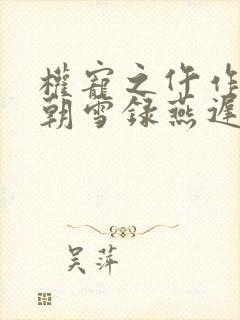 權寵之仵作
朝雪録燕遲
吴萍